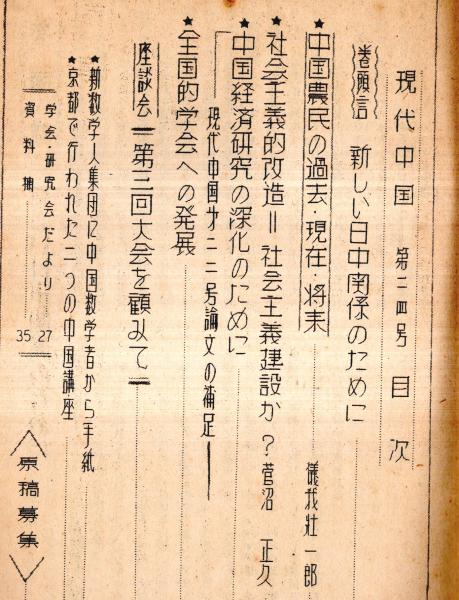 現代中国 第二四号 目次
巻頭言 新しい日中関係のために
★中国農民の過去・現在・将来 儀我壮一郎
★社会主義的改造＝社会主義建設か？ 菅沼正久
★中国経済研究の深化のために
―現代中国才二二号論文の補足―
★全国的学会への発展
座談会＝第三回大会を顧みて＝
★新数学人集団に中国数学者から手紙
★京都で行われた二つの中国講座
学会・研究会だより 27
資料欄 35
原稿募集